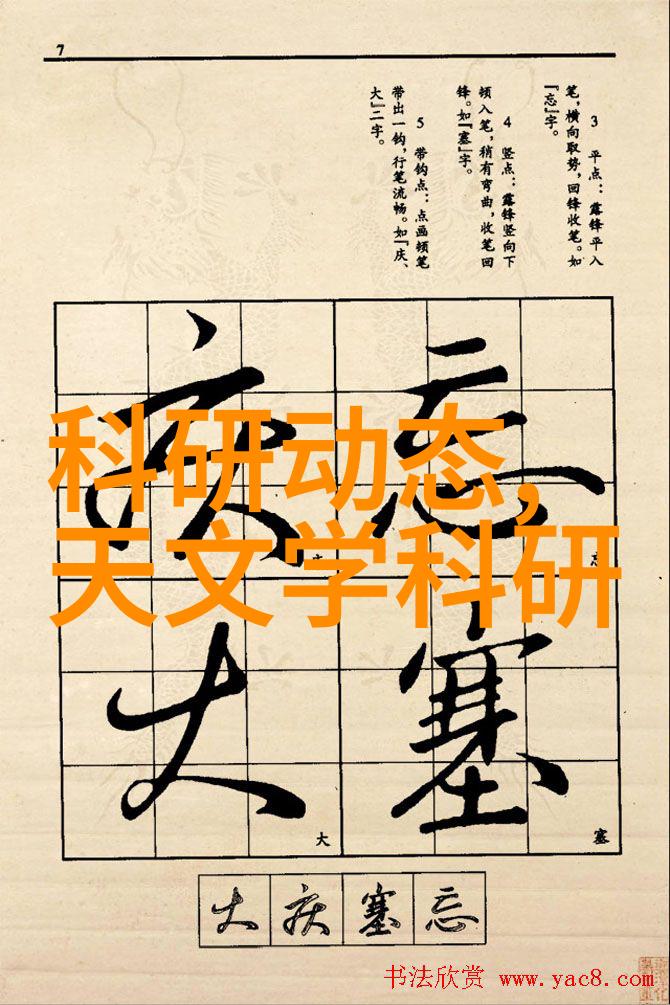 7
3 平点：露锋平入
笔，横向取势，回锋收笔。如
『忘』字。
4 竖点：露锋竖向下
顿入笔，稍有弯曲，收笔回
锋。如『塞』字。
5 带钩点：点画顿笔
带出一钩，行笔流畅。如『庆、
大』二字。
科研动态，
天文学科研
庆 忘
忘
大 塞
大 塞
大 庆 塞 忘
书法欣赏 www.yac8.com